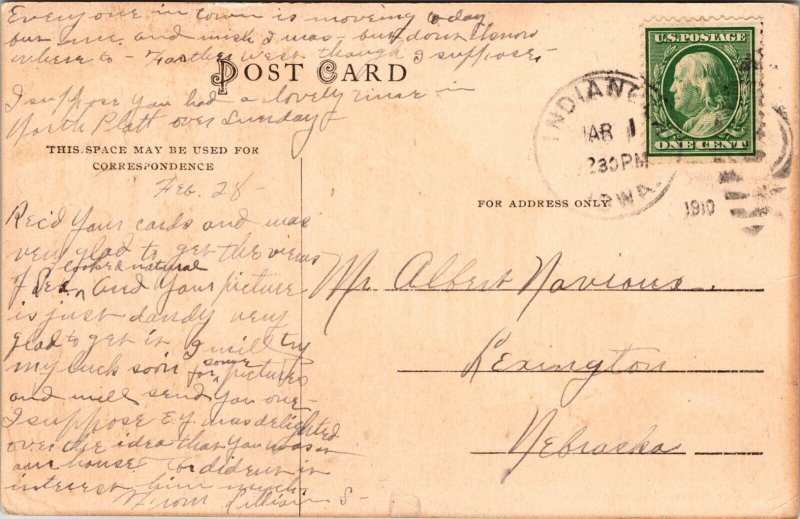 Every one in town is moveing to day
but me, and wish I was - but don't know
where to - Farther west though I suppose -
POST CARD
I suppose you had a lovely time in
North Platt over Sunday -
THIS SPACE MAY BE USED FOR
CORRESPONDENCE
FOR ADDRESS ONLY
U.S. POSTAGE
ONE CENT
INDIANOLA
MAR 1
230PM
IOWA.
1910
Feb. 28 -
Rec'd your cards and was
very glad to get the views
looked natural
of Lex. and your picture
is just dandy very
glad to get it I will try
my luck soon for some pictures
and will send you one -
I suppose E.J. was delighted
over the idea that you was in
our house or didn't it
interest him much.
From Lillian S -
Mr Albert Navious.
Lexington
Nebraska